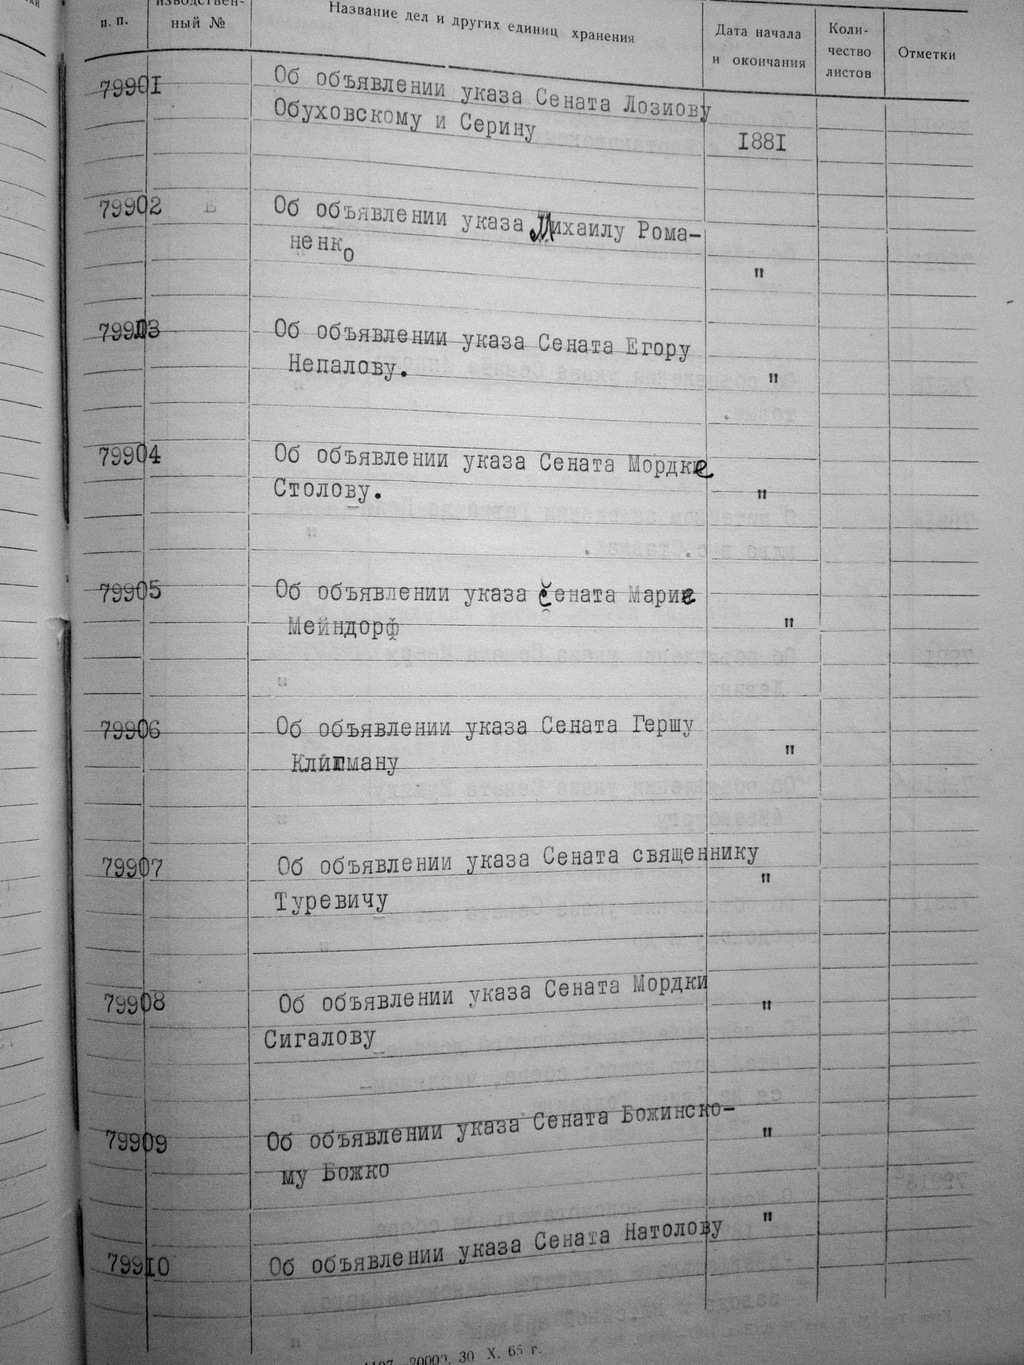 п. п. изводствен- ный № Название дел и других единиц хранения Дата начала и окончания Коли- чество листов Отметки
79901 Об объявлении указа Сената Лозиову
Обуховскому и Серину 1881
79902 Об объявлении указа Михаилу Рома-
ненко "
79903 Об объявлении указа Сената Егору
Непалову. "
79904 Об объявлении указа Сената Мордке
Столову. "
79905 Об объявлении указа Сената Марие
Мейндорф "
79906 Об объявлении указа Сената Гершу
Клигману "
79907 Об объявлении указа Сената священнику
Туревичу "
79908 Об объявлении указа Сената Мордки
Сигалову "
79909 Об объявлении указа Сената Божинско-
му Божко "
79910 Об объявлении указа Сената Натолову "
20000. 30 X. 65 г.